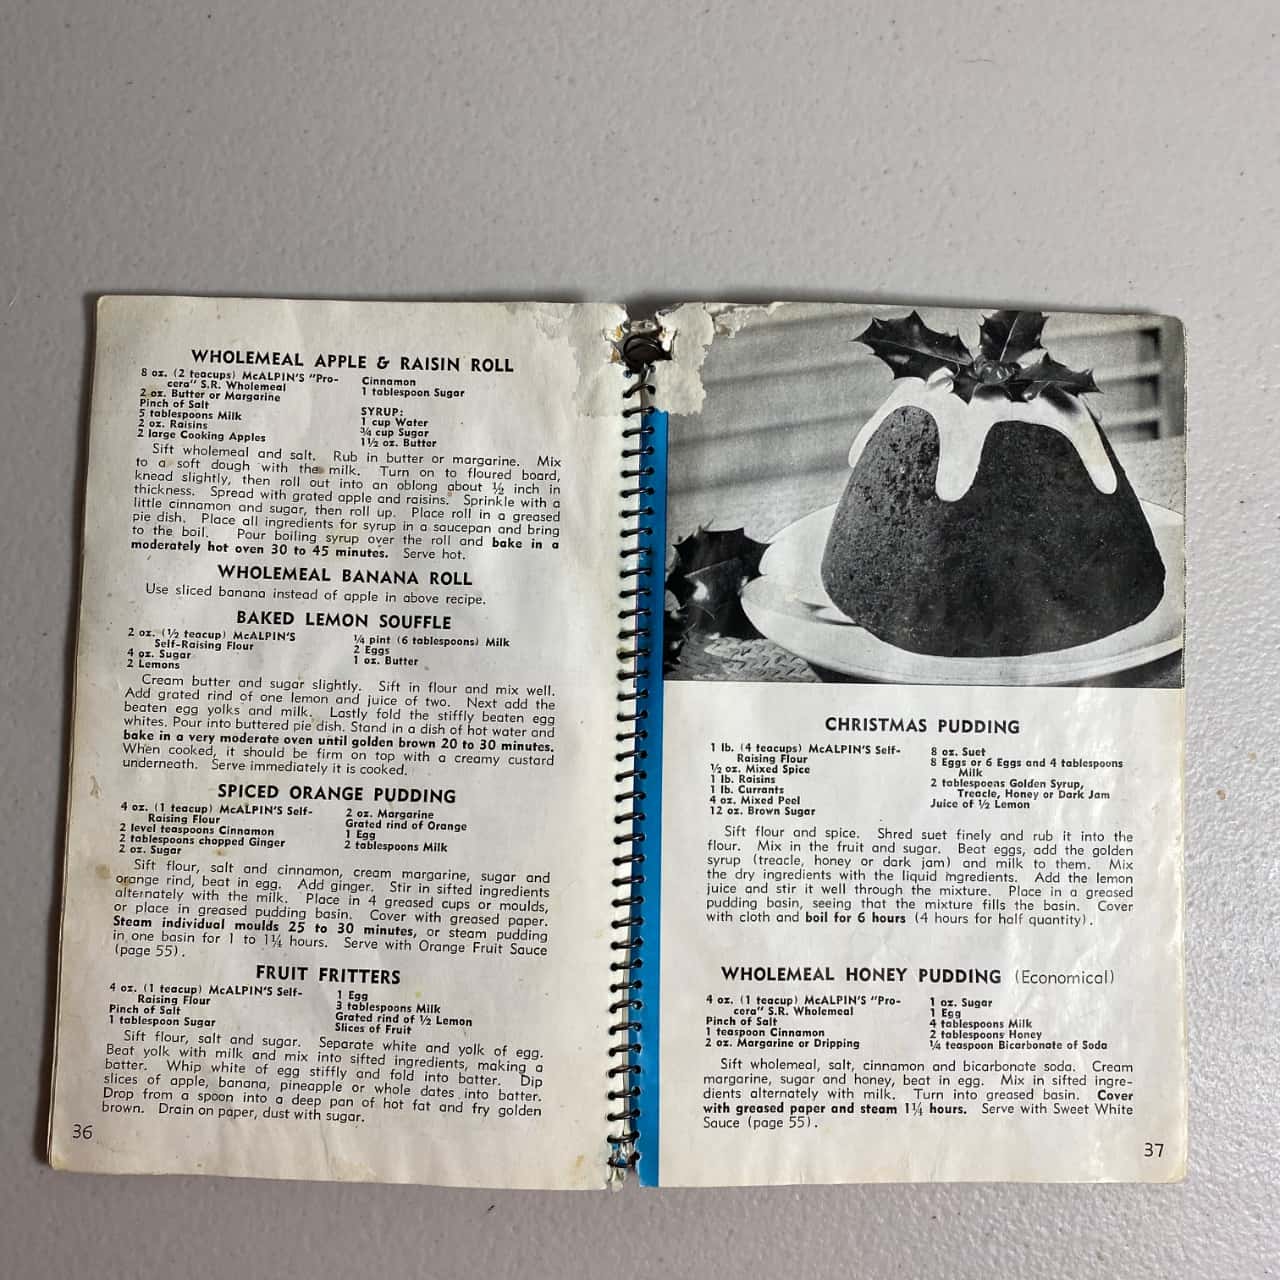 WHOLEMEAL APPLE & RAISIN ROLL
8 oz. (2 teacups) McALPIN'S "Pro-
cera" S.R. Wholemeal
2 oz. Butter or Margarine
Pinch of Salt
5 tablespoons Milk
2 oz. Raisins
2 large Cooking Apples
Cinnamon
1 tablespoon Sugar
SYRUP:
1 cup Water
¾ cup Sugar
1½ oz. Butter
Sift wholemeal and salt. Rub in butter or margarine. Mix
to a soft dough with the milk. Turn on to floured board,
knead slightly, then roll out into an oblong about ½ inch in
thickness. Spread with grated apple and raisins. Sprinkle with a
little cinnamon and sugar, then roll up. Place roll in a greased
pie dish. Place all ingredients for syrup in a saucepan and bring
to the boil. Pour boiling syrup over the roll and bake in a
moderately hot oven 30 to 45 minutes. Serve hot.
WHOLEMEAL BANANA ROLL
Use sliced banana instead of apple in above recipe.
BAKED LEMON SOUFFLE
2 oz. (½ teacup) McALPIN'S
Self-Raising Flour
4 oz. Sugar
2 Lemons
¼ pint (6 tablespoons) Milk
2 Eggs
1 oz. Butter
Cream butter and sugar slightly. Sift in flour and mix well.
Add grated rind of one lemon and juice of two. Next add the
beaten egg yolks and milk. Lastly fold the stiffly beaten egg
whites. Pour into buttered pie dish. Stand in a dish of hot water and
bake in a very moderate oven until golden brown 20 to 30 minutes.
When cooked, it should be firm on top with a creamy custard
underneath. Serve immediately it is cooked.
SPICED ORANGE PUDDING
4 oz. (1 teacup) McALPIN'S Self-
Raising Flour
2 level teaspoons Cinnamon
2 tablespoons chopped Ginger
2 oz. Sugar
2 oz. Margarine
Grated rind of Orange
1 Egg
2 tablespoons Milk
Sift flour, salt and cinnamon, cream margarine, sugar and
orange rind, beat in egg. Add ginger. Stir in sifted ingredients
alternately with the milk. Place in 4 greased cups or moulds,
or place in greased pudding basin. Cover with greased paper.
Steam individual moulds 25 to 30 minutes, or steam pudding
in one basin for 1 to 1¼ hours. Serve with Orange Fruit Sauce
(page 55).
FRUIT FRITTERS
4 oz. (1 teacup) McALPIN'S Self-
Raising Flour
Pinch of Salt
1 tablespoon Sugar
1 Egg
3 tablespoons Milk
Grated rind of ½ Lemon
Slices of Fruit
Sift flour, salt and sugar. Separate white and yolk of egg.
Beat yolk with milk and mix into sifted ingredients, making a
batter. Whip white of egg stiffly and fold into batter. Dip
slices of apple, banana, pineapple or whole dates into batter.
Drop from a spoon into a deep pan of hot fat and fry golden
brown. Drain on paper, dust with sugar.
36
CHRISTMAS PUDDING
1 lb. (4 teacups) McALPIN'S Self-
Raising Flour
½ oz. Mixed Spice
1 lb. Raisins
1 lb. Currants
4 oz. Mixed Peel
12 oz. Brown Sugar
8 oz. Suet
8 Eggs or 6 Eggs and 4 tablespoons
Milk
2 tablespoens Golden Syrup,
Treacle, Honey or Dark Jam
Juice of ½ Lemon
Sift flour and spice. Shred suet finely and rub it into the
flour. Mix in the fruit and sugar. Beat eggs, add the golden
syrup (treacle, honey or dark jam) and milk to them. Mix
the dry ingredients with the liquid ingredients. Add the lemon
juice and stir it well through the mixture. Place in a greased
pudding basin, seeing that the mixture fills the basin. Cover
with cloth and boil for 6 hours (4 hours for half quantity).
WHOLEMEAL HONEY PUDDING (Economical)
4 oz. (1 teacup) McALPIN'S "Pro-
cera" S.R. Wholemeal
Pinch of Salt
1 teaspoon Cinnamon
2 oz. Margarine or Dripping
1 oz. Sugar
1 Egg
4 tablespoons Milk
2 tablespoons Honey
¼ teaspoon Bicarbonate of Soda
Sift wholemeal, salt, cinnamon and bicarbonate soda. Cream
margarine, sugar and honey, beat in egg. Mix in sifted ingre-
dients alternately with milk. Turn into greased basin. Cover
with greased paper and steam 1¼ hours. Serve with Sweet White
Sauce (page 55).
37